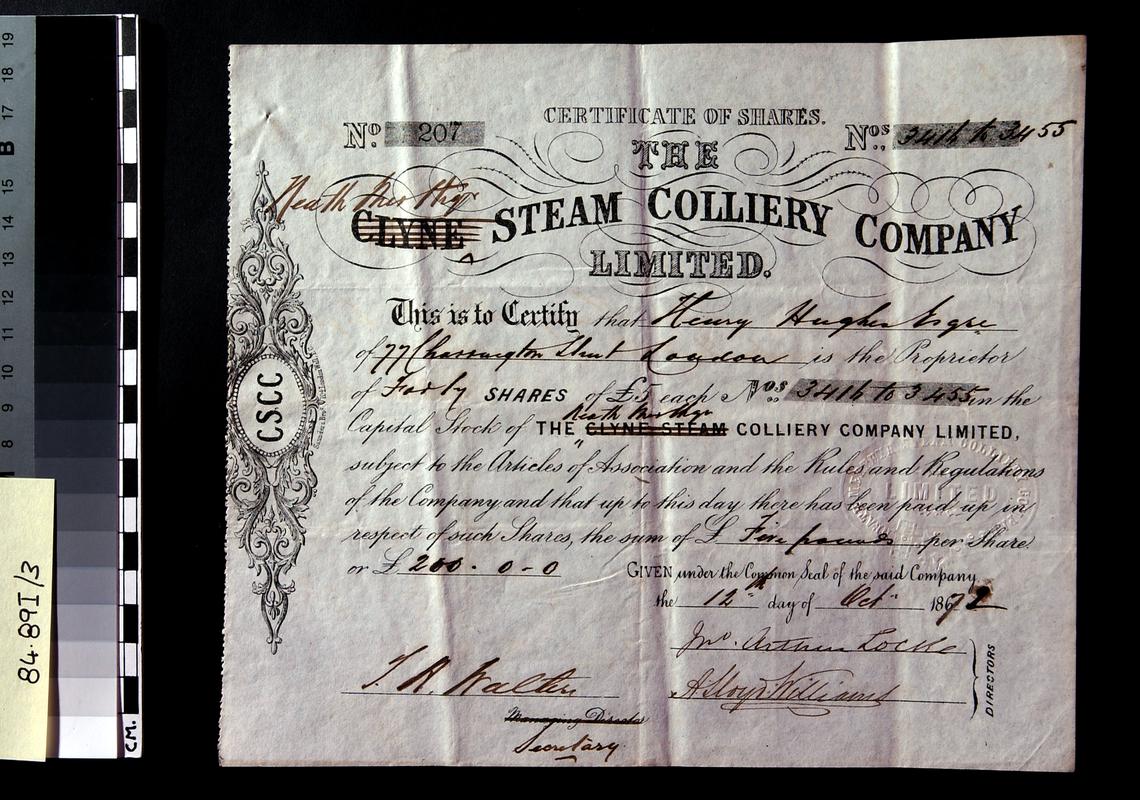 CERTIFICATE OF SHARES.
No. 207 Nos. 3416 to 3455
THE
Neath Merthyr
CLYNE STEAM COLLIERY COMPANY
LIMITED.
This is to Certify that Henry Hughes Esqre
of 77 Charrington Street London is the Proprietor
of Forty SHARES of £5 each Nos. 3416 to 3455 in the
Neath Merthyr
Capital Stock of THE CLYNE STEAM COLLIERY COMPANY LIMITED,
subject to the Articles of Association and the Rules and Regulations
of the Company and that up to this day there has been paid up in
respect of such Shares, the sum of £ Five pounds per Share.
or £ 200.0-0
GIVEN under the Common Seal of the said Company
the 12th day of Oct 1872
Jno. Arthur Locke
T. R. Walter
A Lloyd Williams
DIRECTORS
Managing Director
Secretary
C.S.C.C
LIMITED
84.89I/3
CM.
B
19
18
17
15
14
13
12
11
10
9
8